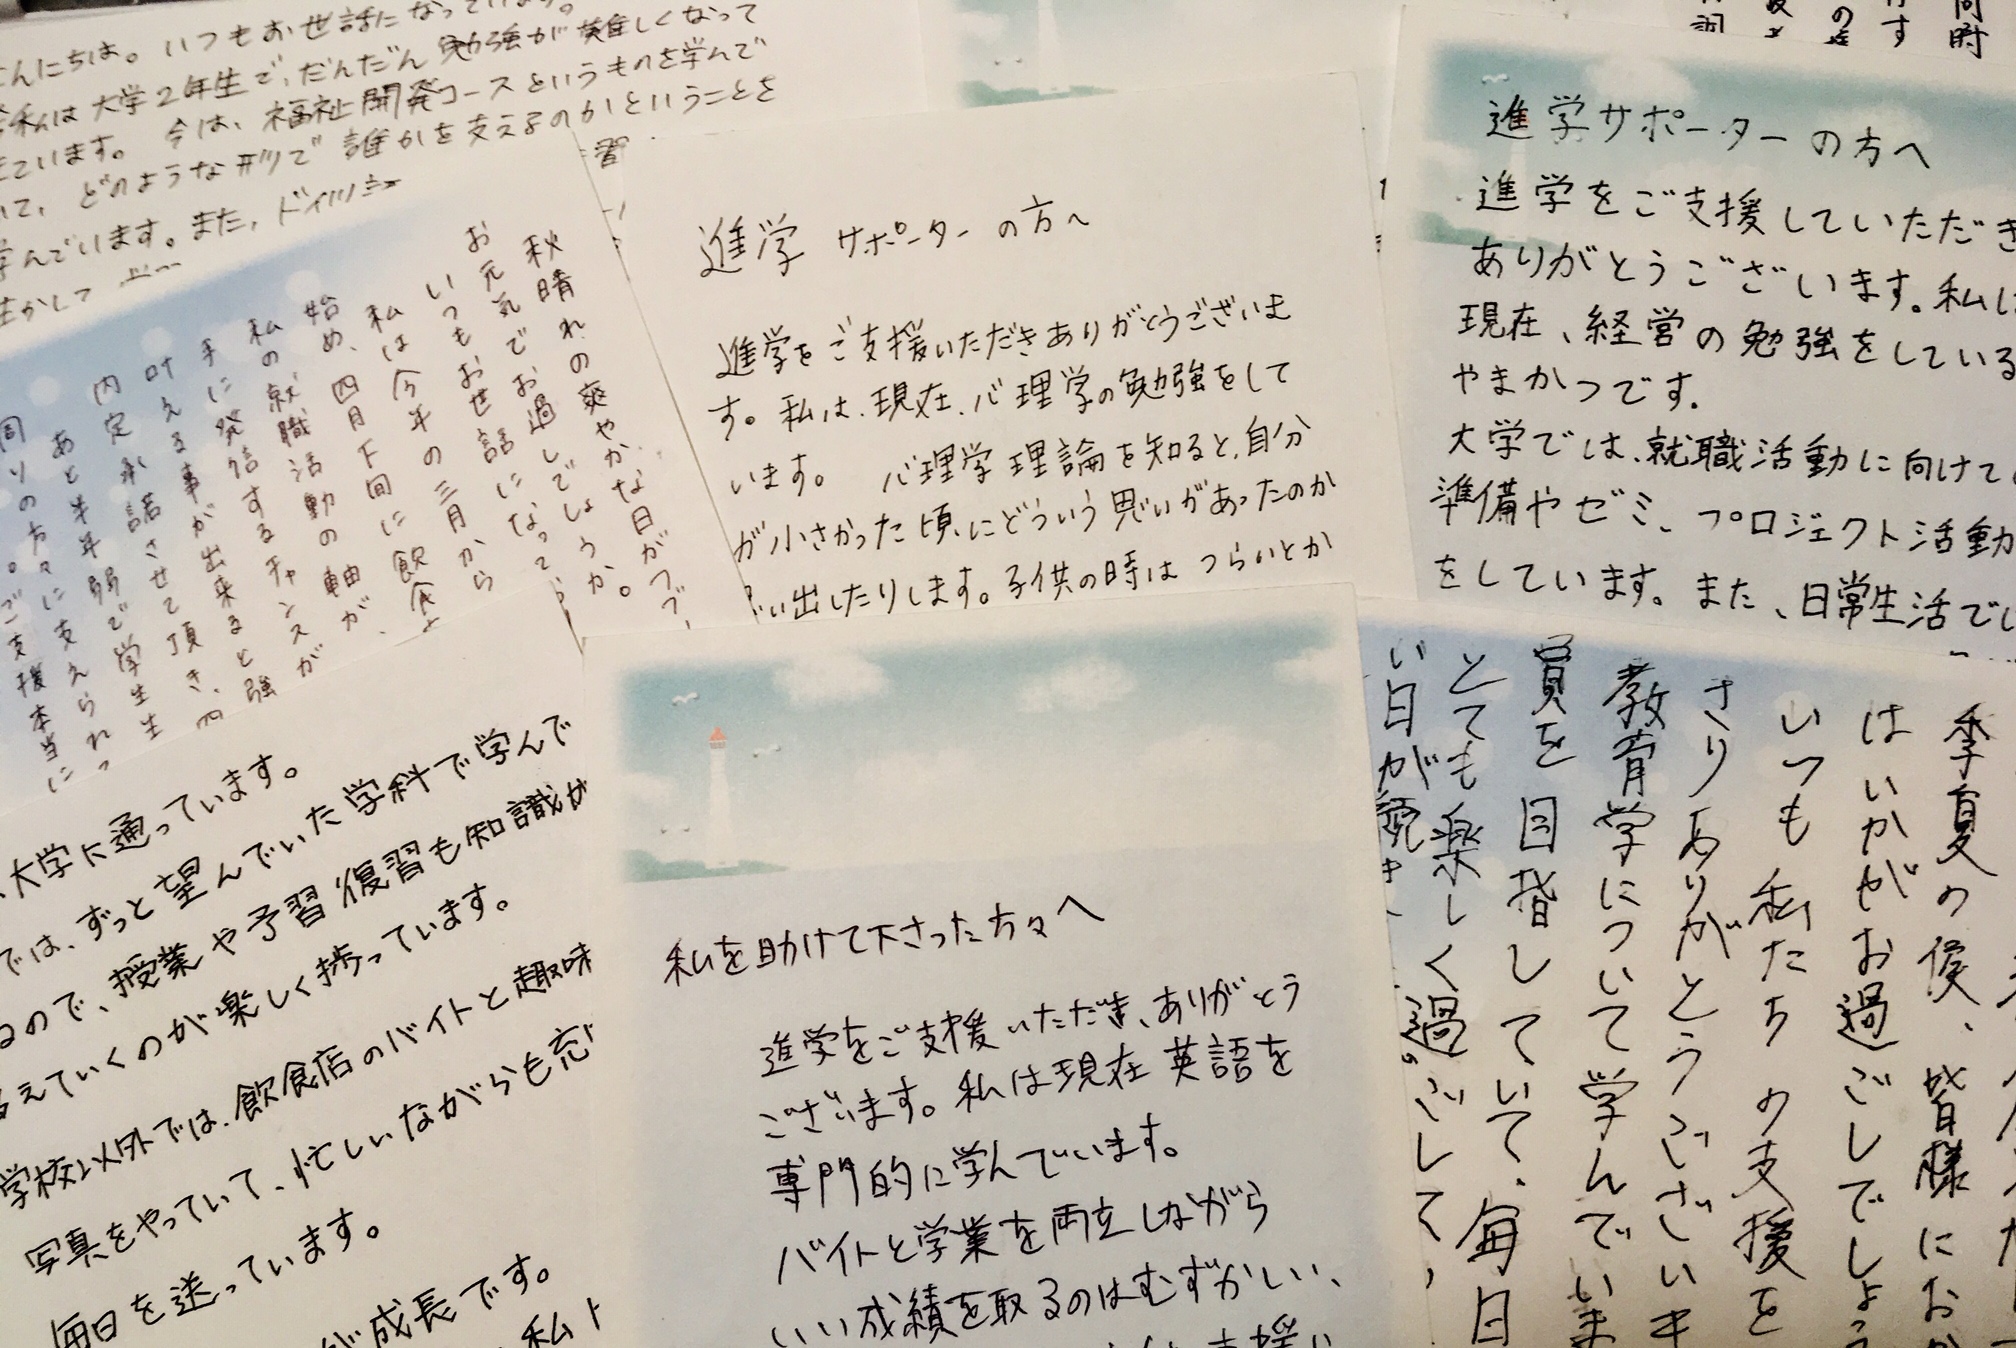 こんにちは。いつもお世話になっています。
私は大学2年生で、だんだん勉強が難しくなって
ています。今は、福祉開発コースというものを学んで
いて、どのような形で誰かを支えるのかということを
学んでいます。また、ドイツ語
生かして
秋晴れの爽やかな日がつづ
お元気でお過しでしょうか。
いつもお世話になって
私は今年の三月から
始め、四月下旬に飲食
私の就職活動の軸が、
手に発信するチャンスが
叶える事が出来ると強
内定承諾させて頂き、四
あと半年弱で学生生
周りの方々に支えられっ
。ご支援本当に
進学サポーターの方へ
進学をご支援いただきありがとうございま
す。私は、現在、心理学の勉強をして
います。 心理学理論を知ると、自分
が小さかった頃にどういう思いがあったのか
い出したりします。子供の時はつらいとか
進学サポーターの方へ
進学をご支援していただき
ありがとうございます。私は
現在、経営の勉強をしている
やまかつです。
大学では、就職活動に向けての
準備やゼミ、プロジェクト活動
をしています。また、日常生活でし
大学に通っています。
では、ずっと望んでいた学科で学んで
るので、授業や予習復習も知識が
増えていくのが楽しく捗っています。
学校以外では、飲食店のバイトと趣味
写真をやっていて、忙しいながらも充
毎日を送っています。
が成長です。
私ト
私を助けて下さった方々へ
進学をご支援いただき、ありがとう
ございます。私は現在英語を
専門的に学んでいます。
バイトと学業を両立しながら
いい成績を取るのはむずかしい、
支援い
季夏の候、皆様にお
はいかがお過ごしでしょう
いつも私たちの支援を
さりありがとうございま
教育学について学んでいま
員を目指していて、毎日
とても楽しく過ごして、
い日が続き